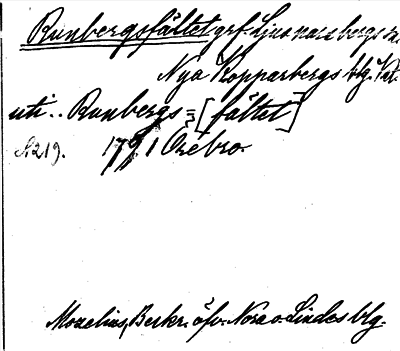 Runbergsfältet grf. Ljusnarsbergs s.
Nya Kopparbergs blg. Vst.
uti .. Runbergs=[fältet]
A219. 1791 Örebro.
Mozelius, Berkr. öfv. Nora o. Lindes blg.